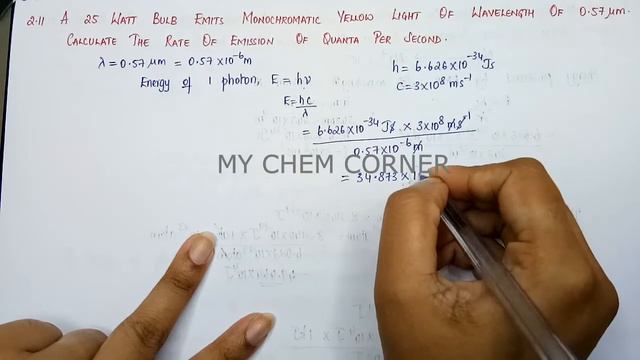 2.11 A 25 WATT BULB EMITS MONOCHROMATIC YELLOW LIGHT OF WAVELENGTH OF 0.57 μm.
CALCULATE THE RATE OF EMISSION OF QUANTA PER SECOND.
λ = 0.57 μm = 0.57 × 10⁻⁶ m
h = 6.626 × 10⁻³⁴ Js
Energy of 1 photon, E = hν
C = 3 × 10⁸ ms⁻¹
E = hc/λ
= 6.626 × 10⁻³⁴ Js × 3 × 10⁸ ms⁻¹
0.57 × 10⁻⁶ m
MY CHEM CORNER
= 34.873 × 1